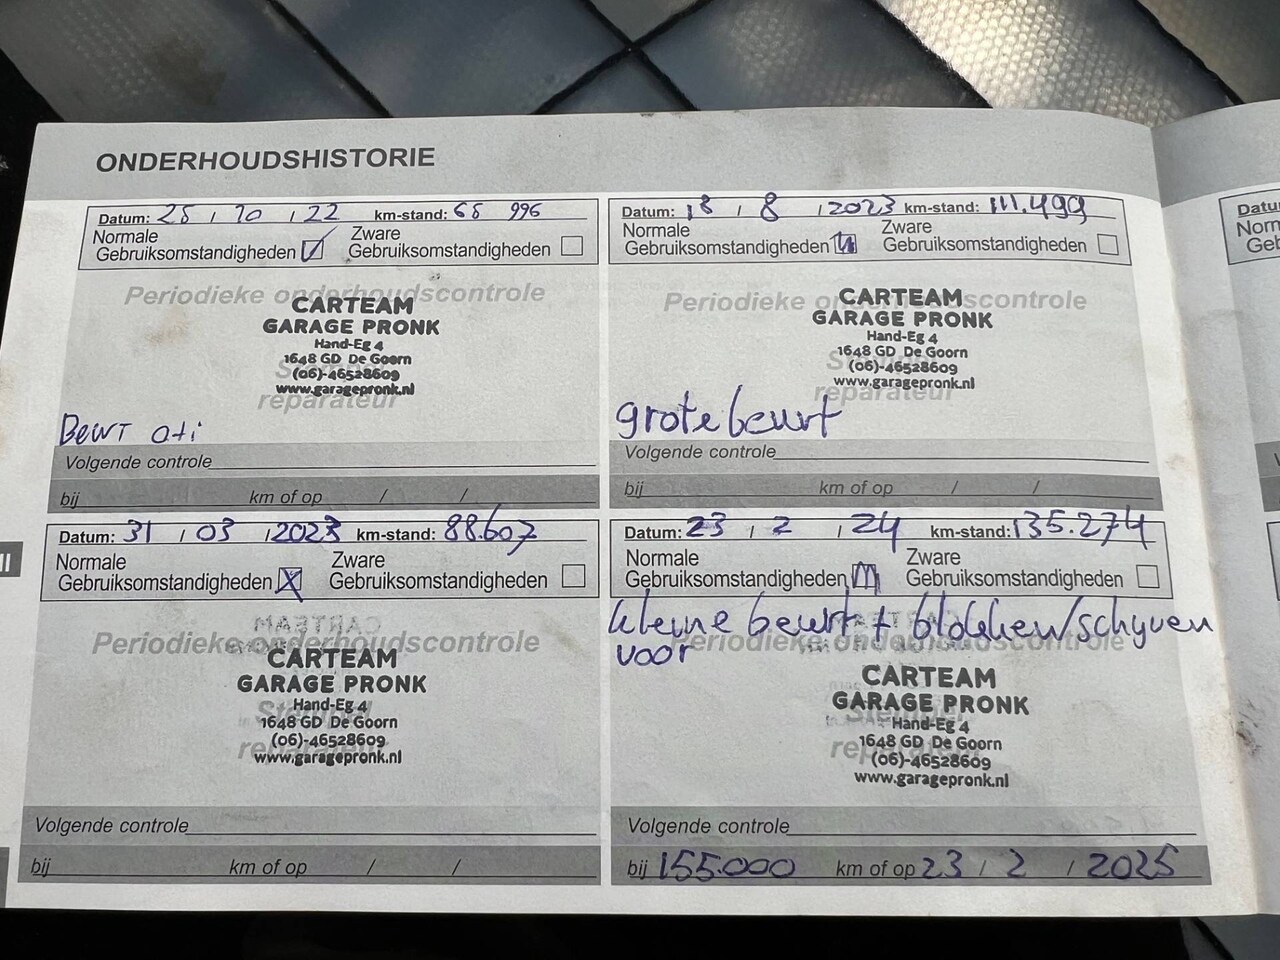 ONDERHOUDSHISTORIE
Datum: 25 / 10 / 22 km-stand: 65 996
Normale
Gebruiksomstandigheden
Zware
Gebruiksomstandigheden
Periodieke onderhoudscontrole
CARTEAM
GARAGE PRONK
Hand-Eg 4
1648 GD De Goorn
(06)-46528609
www.garagepronk.nl
reparateur
Beurt
Volgende controle
bij km of op / /
Datum: 18 / 8 / 2023 km-stand: 111.499
Normale
Gebruiksomstandigheden
Zware
Gebruiksomstandigheden
Periodieke onderhoudscontrole
CARTEAM
GARAGE PRONK
Hand-Eg 4
1648 GD De Goorn
(06)-46528609
www.garagepronk.nl
reparateur
grote beurt
Volgende controle
bij km of op / /
Datum: 31 / 03 / 2023 km-stand: 88.607
Normale
Gebruiksomstandigheden
Zware
Gebruiksomstandigheden
Periodieke onderhoudscontrole
CARTEAM
GARAGE PRONK
Hand-Eg 4
Stempel
1648 GD De Goorn
(06)-46528609
reparateur
www.garagepronk.nl
Volgende controle
bij km of op / /
Datum: 23 / 2 / 24 km-stand: 135.274
Normale
Gebruiksomstandigheden
Zware
Gebruiksomstandigheden
kleine beurt + blokken/schyven
voor
Periodieke onderhoudscontrole
CARTEAM
GARAGE PRONK
Stempel
Hand-Eg 4
1648 GD De Goorn
reparateur
(06)-46528609
www.garagepronk.nl
Volgende controle
bij 155.000 km of op 23 / 2 / 2025